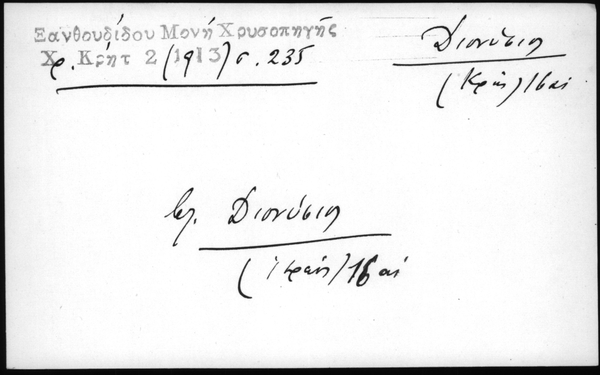 Ξανθουδίδου Μονή Χρυσοπηγής
Χρ. Κρήτ 2 (1913) σ. 235
Διονύσιος
16 αἰ
βλ. Διονύσιος
16 αἰ